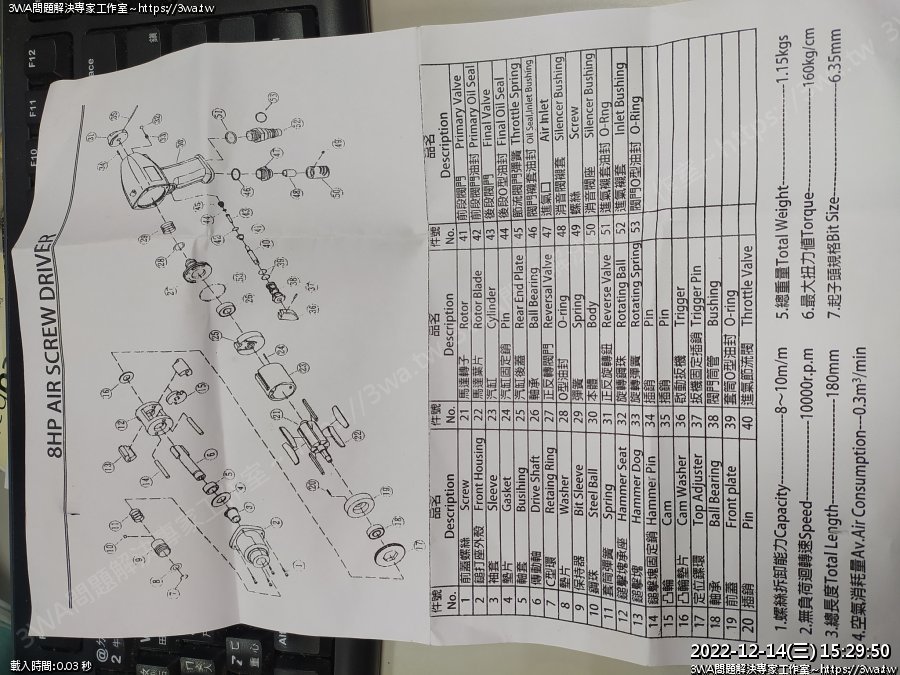 3WA問題解決專家工作室~https://3wa.tw
3WA問題解決專家工作室~https://3wa.tw
8HP AIR SCREW DRIVER
件號 No. 品名 Description
1 前蓋螺絲 Screw
2 鎚打座外殼 Front Housing
3 袖套 Sleeve
4 墊片 Gasket
5 軸套 Bushing
6 傳動軸 Drive Shaft
7 C型環 Retaing Ring
8 墊片 Washer
9 保持器 Bit Sleeve
10 鋼珠 Steel Ball
11 套筒彈簧 Spring
12 鎚擊塊承座 Hammer Seat
13 鎚擊塊 Hammer Dog
14 鎚擊塊固定銷 Hammer Pin
15 凸輪 Cam
16 凸輪墊片 Cam Washer
17 定位鐵環 Top Adjuster
18 軸承 Ball Bearing
19 前蓋 Front plate
20 插銷 Pin
件號 No. 品名 Description
21 馬達轉子 Rotor
22 馬達葉片 Rotor Blade
23 汽缸 Cylinder
24 汽缸固定銷 Pin
25 汽缸後蓋 Rear End Plate
26 軸承 Ball Bearing
27 正反轉閥門 Reversal Valve
28 O型油封 O-ring
29 彈簧 Spring
30 本體 Body
31 正反旋轉鈕 Reverse Valve
32 旋轉鋼珠 Rotating Ball
33 旋轉彈簧 Rotating Spring
34 插銷 Pin
35 插銷 Pin
36 啟動扳機 Trigger
37 扳機固定插銷 Trigger Pin
38 閥門筒管 Bushing
39 套筒O型油封 O-ring
40 進氣節流閥 Throttle Valve
件號 No. 品名 Description
41 前段閥門 Primary Valve
42 前段閥門油封 Primary Oil Seal
43 後段閥門 Final Valve
44 後段O型油封 Final Oil Seal
45 節流閥門彈簧 Throttle Spring
46 閥門襯套油封 Oil Seal,Unlet Bushing
47 進氣口 Air Inlet
48 消音閥襯套 Silencer Bushing
49 螺絲 Screw
50 消音閥座 Silencer Bushing
51 進氣襯套油封 O-Rng
52 進氣襯套 Inlet Bushing
53 閥門O型油封 O-Ring
1.螺絲拆卸能力Capacity----------8~10m/m
2.無負荷迴轉速Speed----------10000r.p.m
3.總長度Total Length----------180mm
4.空氣消耗量Av.Air Consumption---0.3m³/min
5.總重量Total Weight----------1.15kgs
6.最大扭力值Torque----------160kg/cm
7.起子頭規格Bit Size----------6.35mm
載入時間:0.03 秒
2022-12-14(三) 15:29:50
3WA問題解決專家工作室~https://3wa.tw